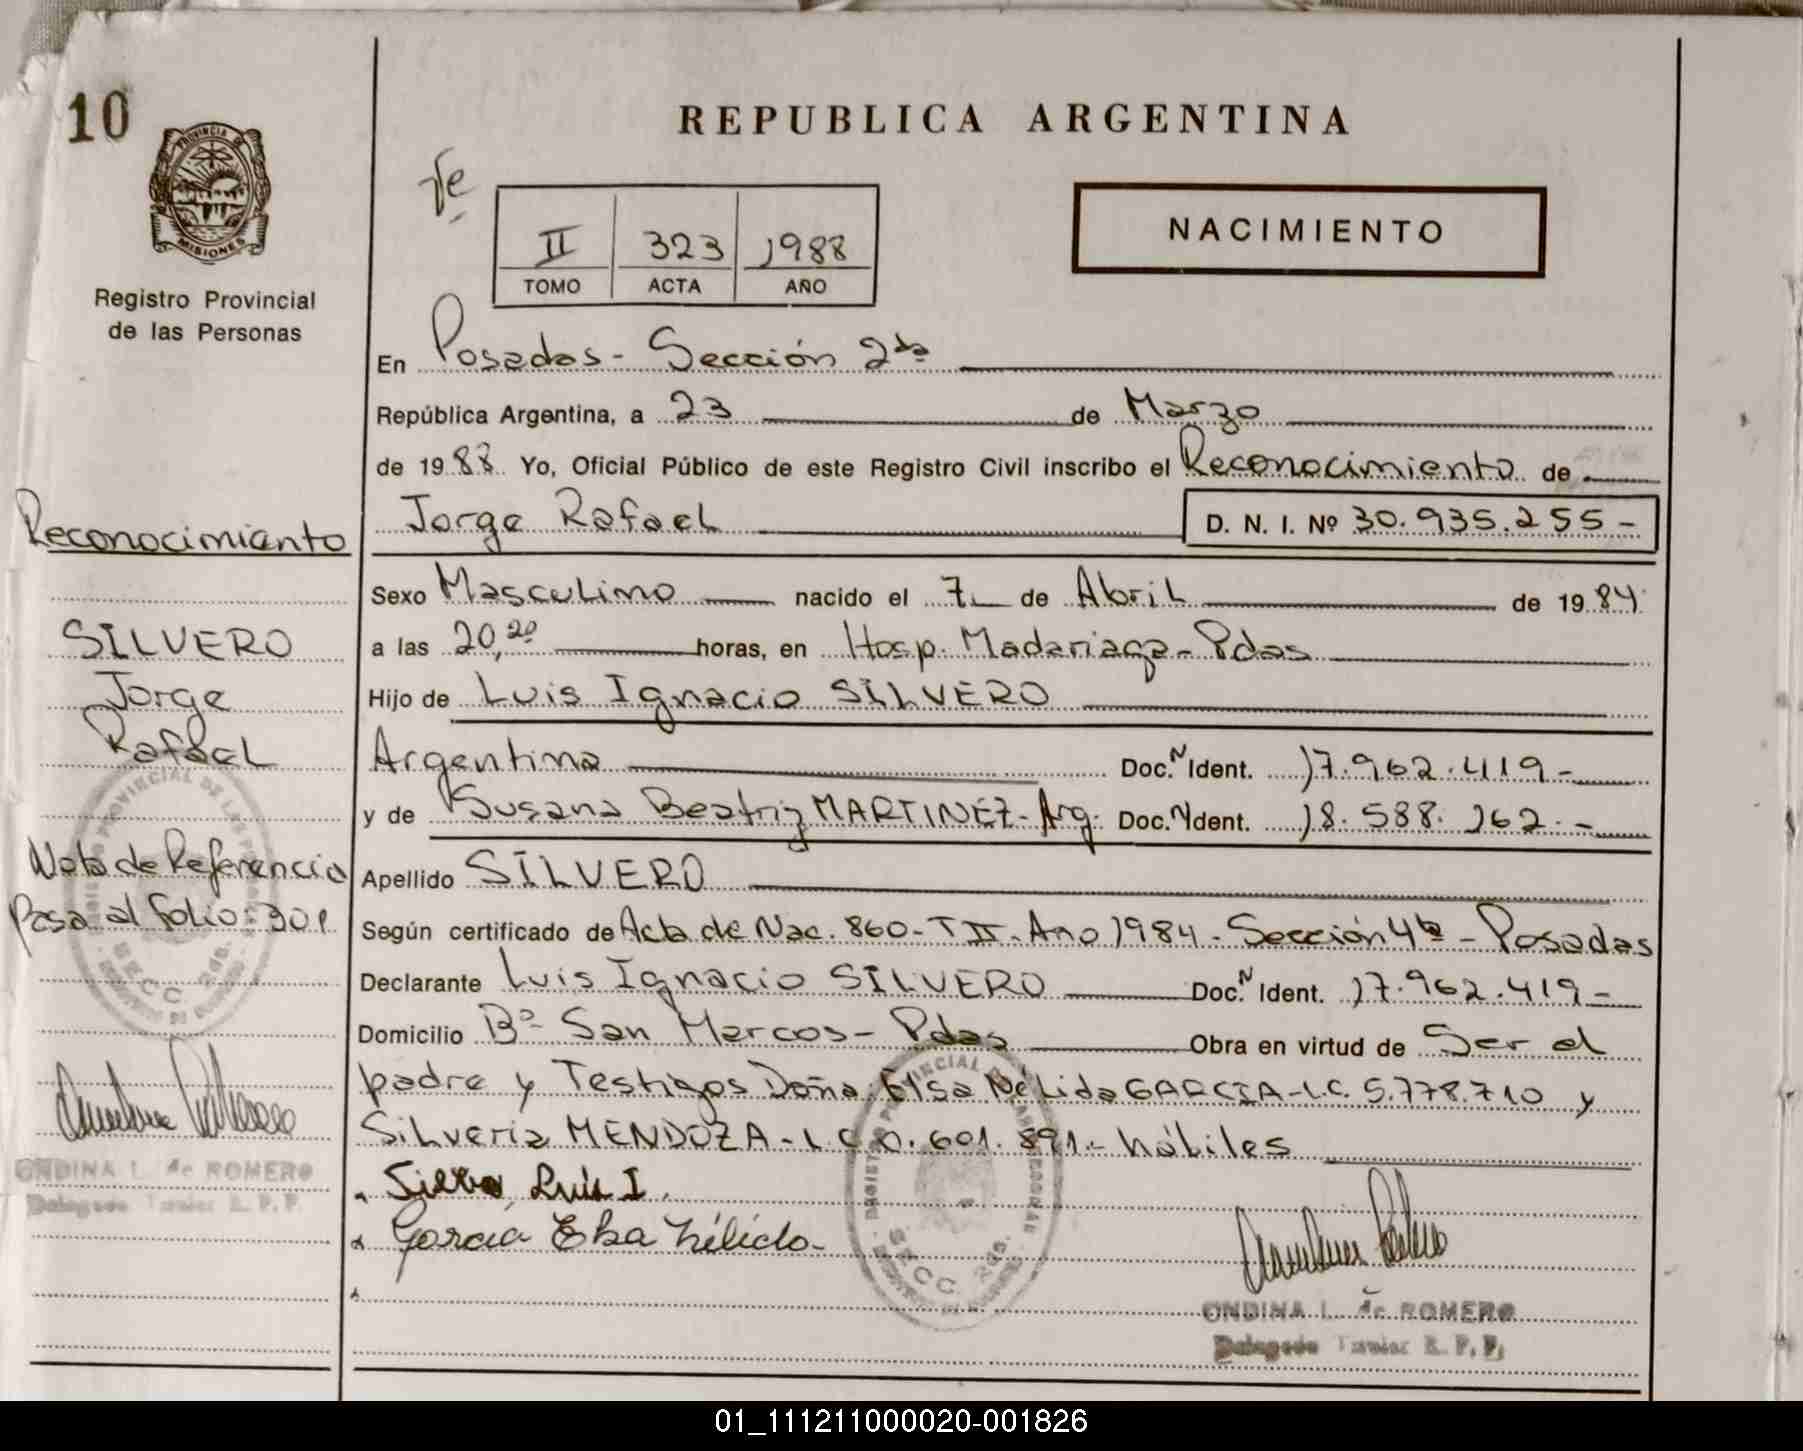 10
PROVINCIA DE
MISIONES
Registro Provincial
de las Personas
REPUBLICA ARGENTINA
II 323 1988
TOMO ACTA AÑO
NACIMIENTO
En Posadas - Sección 2da
República Argentina, a 23 de Marzo
de 1988 Yo, Oficial Público de este Registro Civil inscribo el Reconocimiento de
Jorge Rafael D. N. I. Nº 30.935.255-
Sexo Masculino nacido el 7 de Abril de 1984
a las 20,20 horas, en Hosp. Madariaga - Pdas
Hijo de Luis Ignacio SILVERO
Argentina Doc.N Ident. 17.962.419-
y de Susana Beatriz MARTINEZ - Arg. Doc.N Ident. 18.588.162.-
Apellido SILVERO
Según certificado de Acta de Nac. 860 - T II - Año 1984 - Sección 4ta - Posadas
Declarante Luis Ignacio SILVERO Doc.N Ident. 17.962.419-
Domicilio Bº San Marcos - Pdas Obra en virtud de Ser el
padre y Testigos Doña: Elsa Nélida GARCIA - L.C. 5.778.710 y
Silveria MENDOZA - L.C. 0.601.891.- hábiles
Luis I.
García Elsa Nélida
ONDINA L. de ROMERO
Delegado Titular R. P. P.
Reconocimiento
SILVERO
Jorge
Rafael
Nota de Referencia
Pasa al folio: 301
ONDINA L. de ROMERO
Delegado Titular R. P. P.
01_111211000020-001826